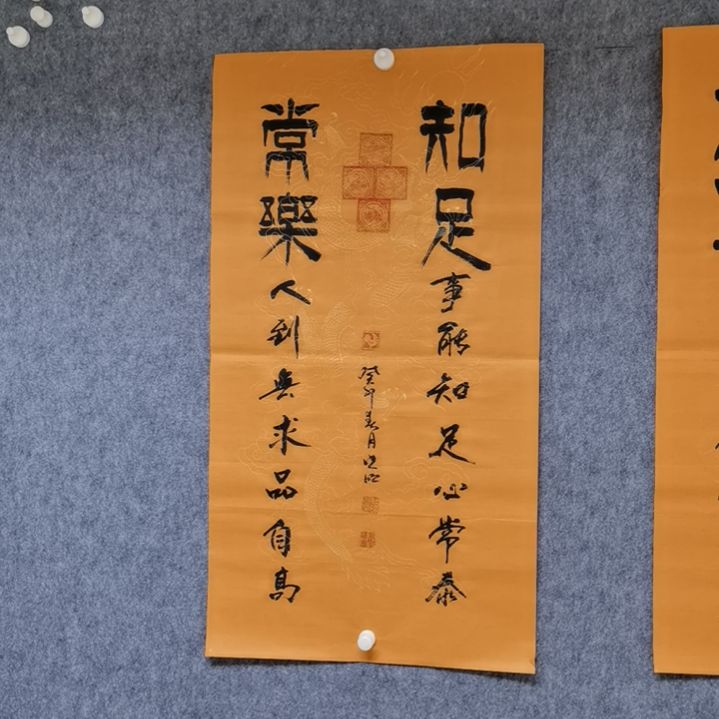 知足
事能知足心常泰
常樂
人到無求品自高
癸卯春月